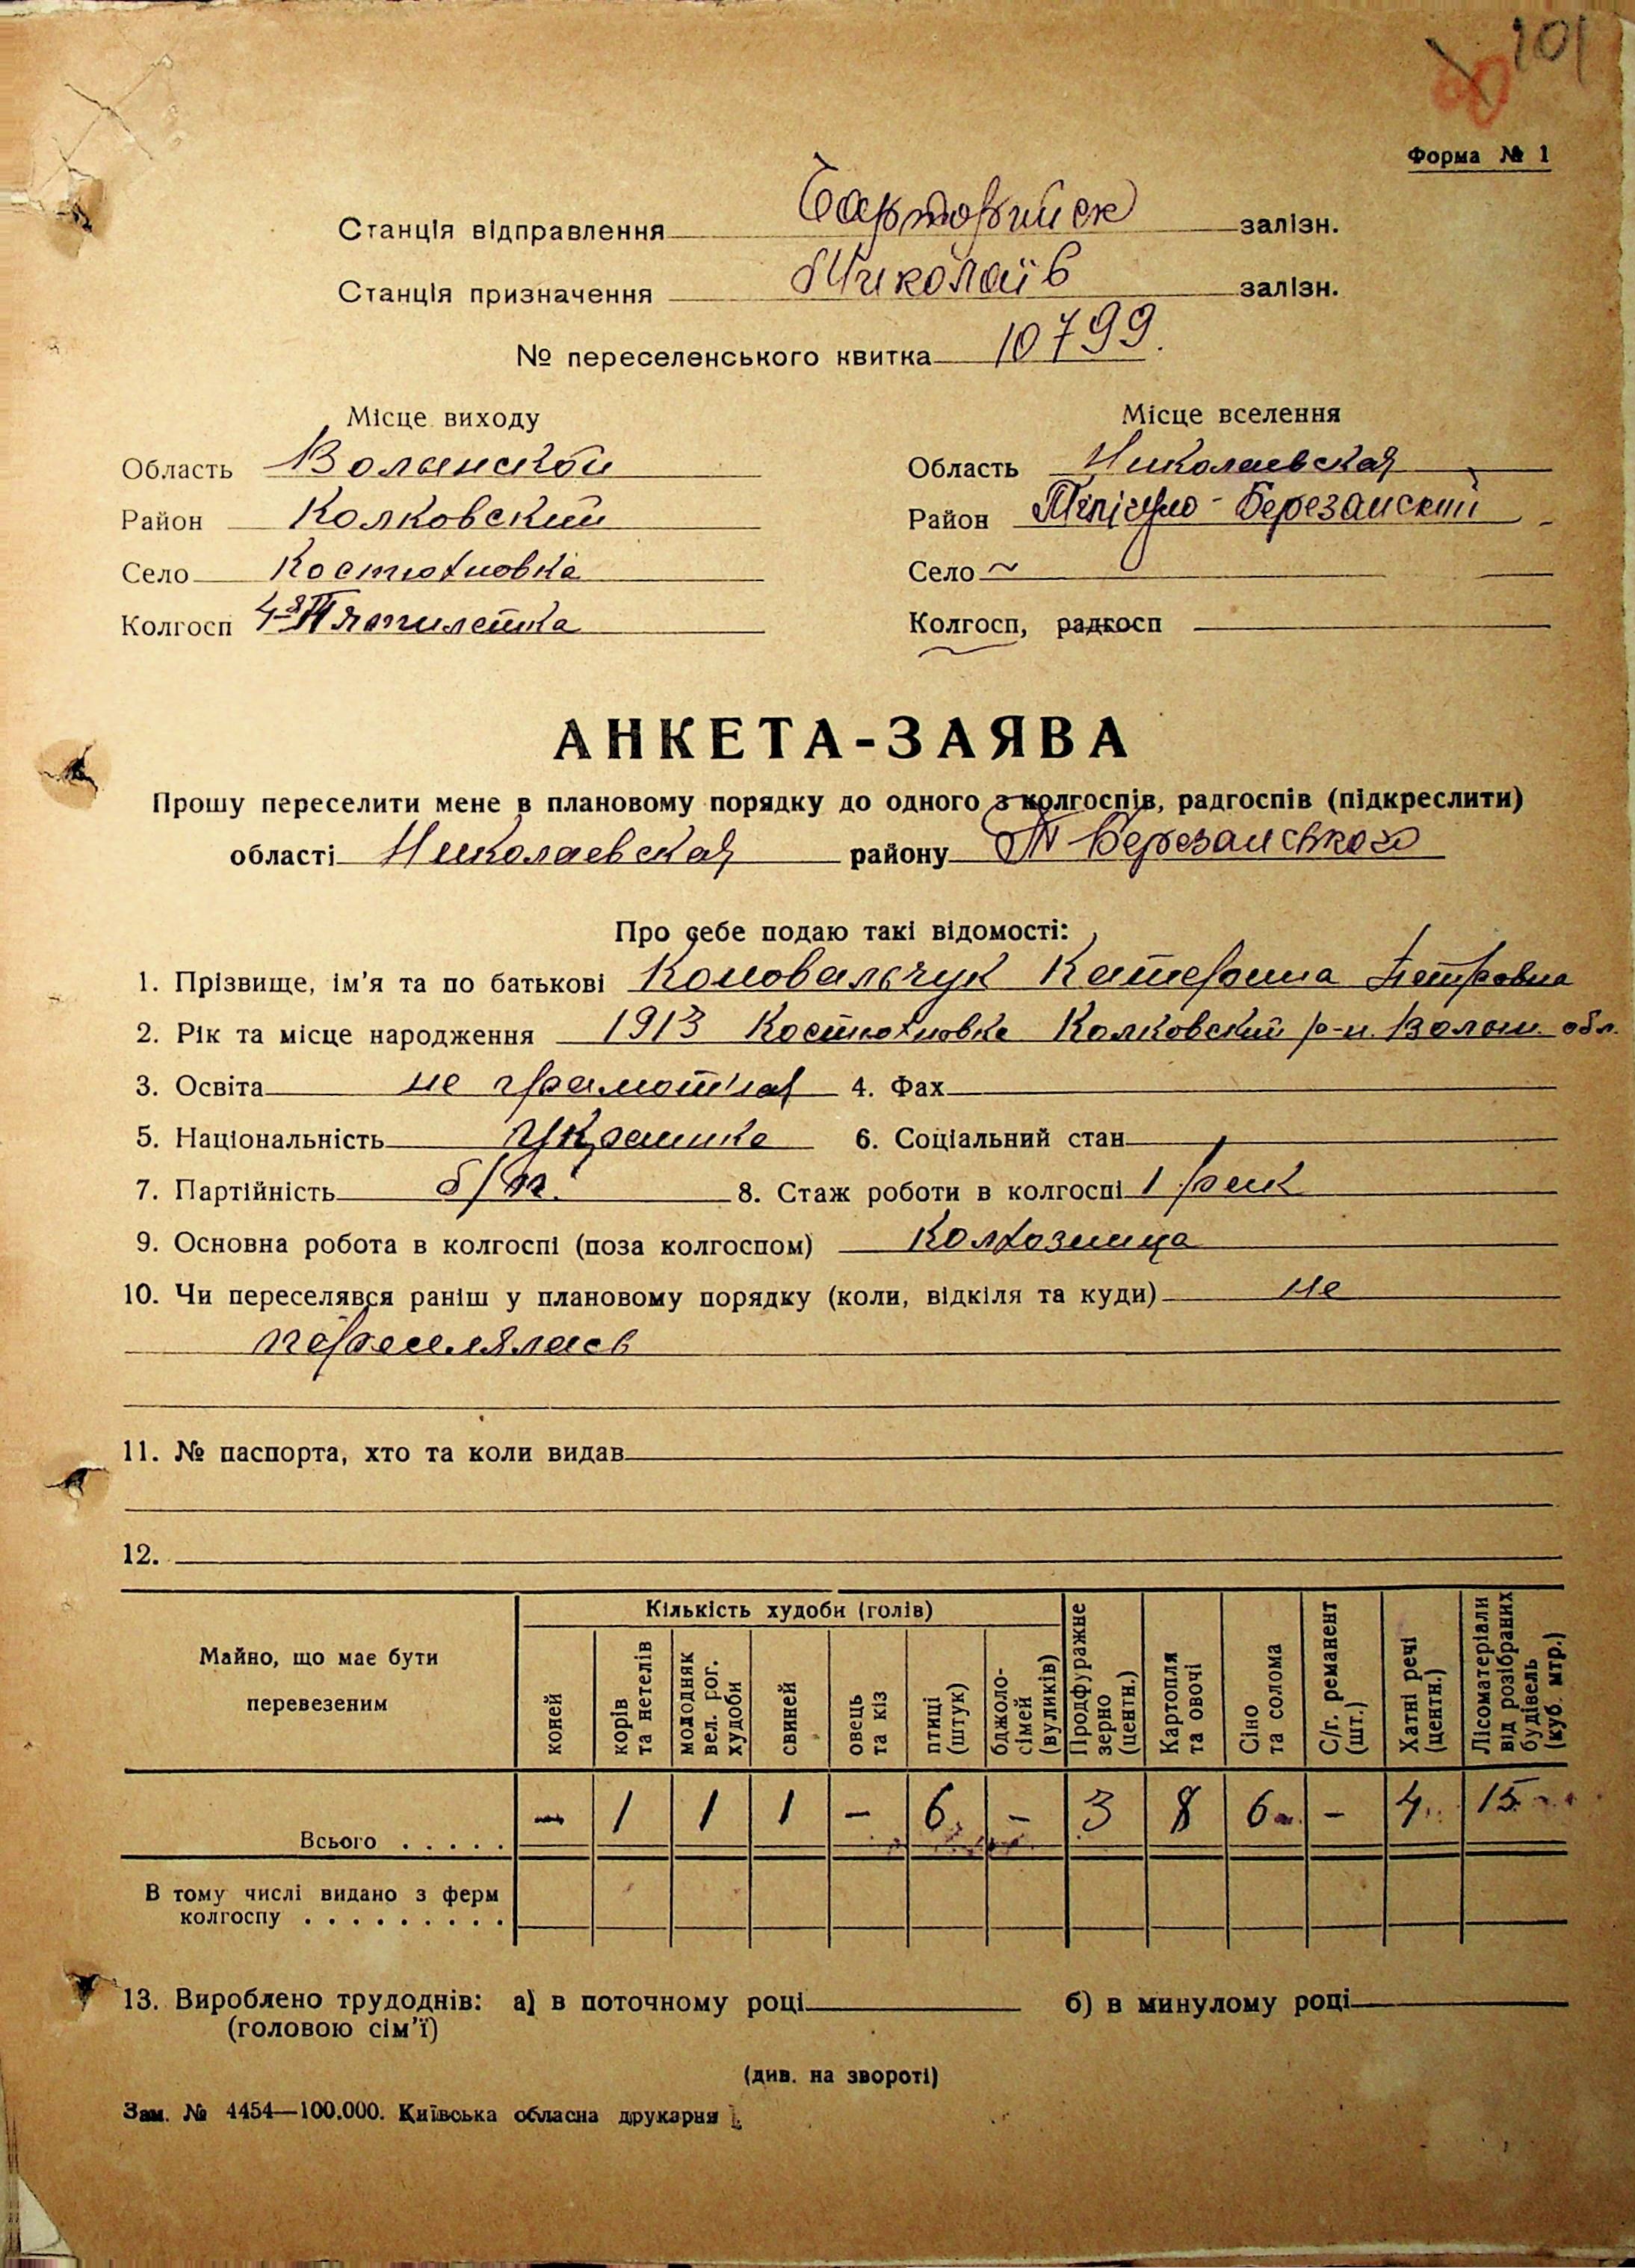 101
Форма № 1
Станція відправлення Чарторийск залізн.
Станція призначення Миколаїв залізн.
№ переселенського квитка 10799.
Місце виходу Місце вселення
Область Волынской Область Николаевская
Район Колковский Район Тілігуло-Березанский
Село Костюхновка Село ~
Колгосп 4-я Пятилетка Колгосп, радгосп
АНКЕТА-ЗАЯВА
Прошу переселити мене в плановому порядку до одного з колгоспів, радгоспів (підкреслити)
області Николаевская району Т Березанського
Про себе подаю такі відомості:
1. Прізвище, ім'я та по батькові Коновальчук Катерина Петровна
2. Рік та місце народження 1913 Костюхновка Колковский р-н. Волын. обл.
3. Освіта не грамотная 4. Фах
5. Національність Украинка 6. Соціальний стан
7. Партійність б/п. 8. Стаж роботи в колгоспі 1 рик
9. Основна робота в колгоспі (поза колгоспом) Колхозница
10. Чи переселявся раніш у плановому порядку (коли, відкіля та куди) не
переселялась
11. № паспорта, хто та коли видав
12.
Майно, що має бути перевезеним
Кількість худоби (голів)
коней
корів та нетелів
молодняк вел. рог. худоби
свиней
овець та кіз
птиці (штук)
бджоло-сімей (вуликів)
Продфуражне зерно (центн.)
Картопля та овочі
Сіно та солома
С/г. реманент (шт.)
Хатні речі (центн.)
Лісоматеріали від розібраних будівель (куб. мтр.)
Всього . . . . . — 1 1 1 — 6 — 3 8 6 — 4 15
В тому числі видано з ферм
колгоспу . . . . . . . . .
13. Вироблено трудоднів: а) в поточному році б) в минулому році
(головою сім'ї)
(див. на звороті)
Зам. № 4454—100.000. Київська обласна друкарня